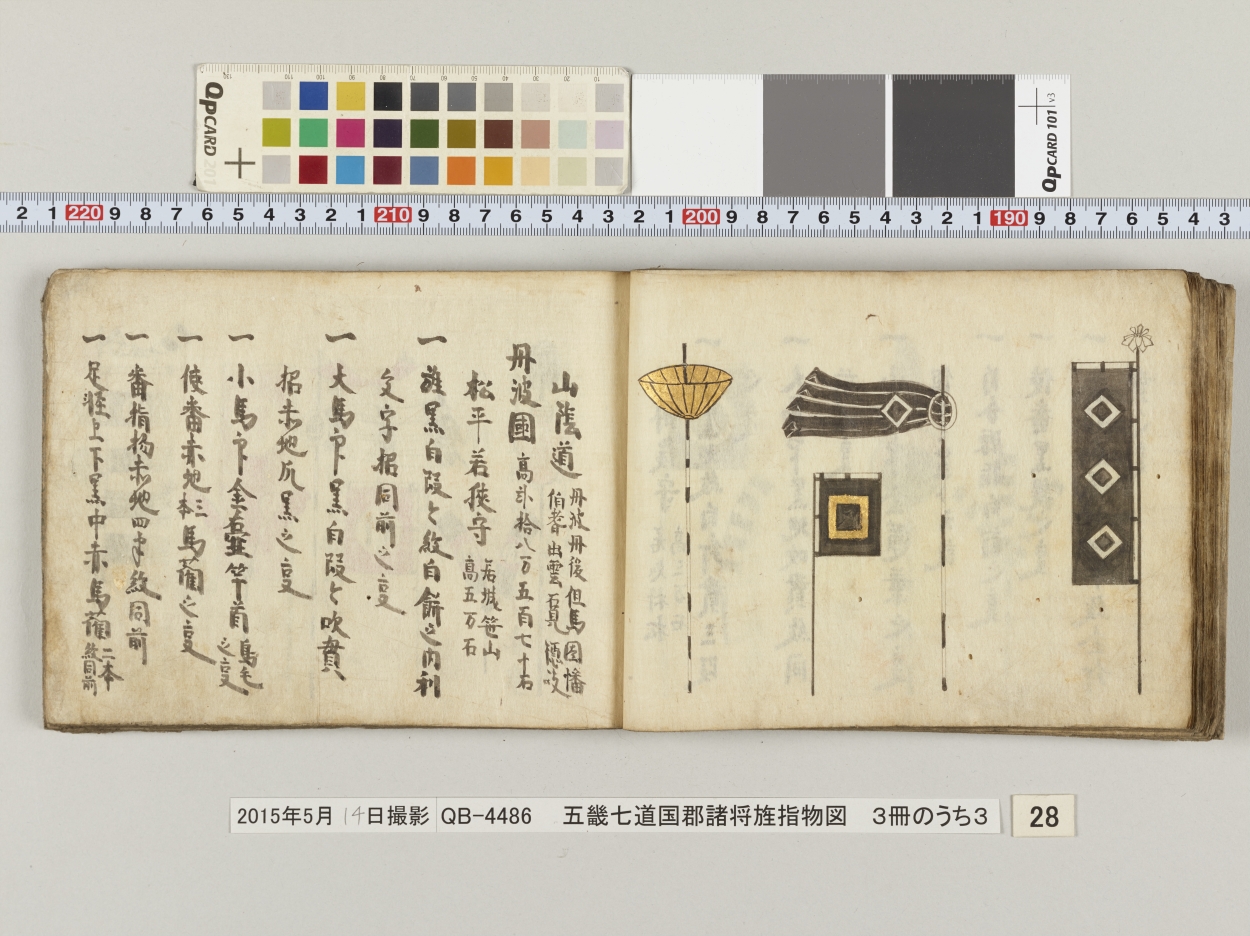 QpCARD 201
QpCARD 101 v3
2 1 220 9 8 7 6 5 4 3 2 1 210 9 8 7 6 5 4 3 2 1 200 9 8 7 6 5 4 3 2 1 190 9 8 7 6 5 4 3
山陰道 丹波丹後但馬因幡
伯耆出雲石見隠岐
丹波國 高弐拾八万五百七十石
松平若狭守 居城笹山
高五万石
一 旌黒白段々紋白餅之内利
文字招同前之亥
一 大馬印黒白段々吹貫
招赤地瓦黒之亥
一 小馬印金笠竿首鳥毛之亥
一 使番赤地三本馬藺之亥
一 番指物赤地四半紋同前
一 足軽上下黒中赤馬藺二本
紋同前
2015年5月14日撮影 QB-4486 五畿七道国郡諸将旌指物図 3冊のうち3
28